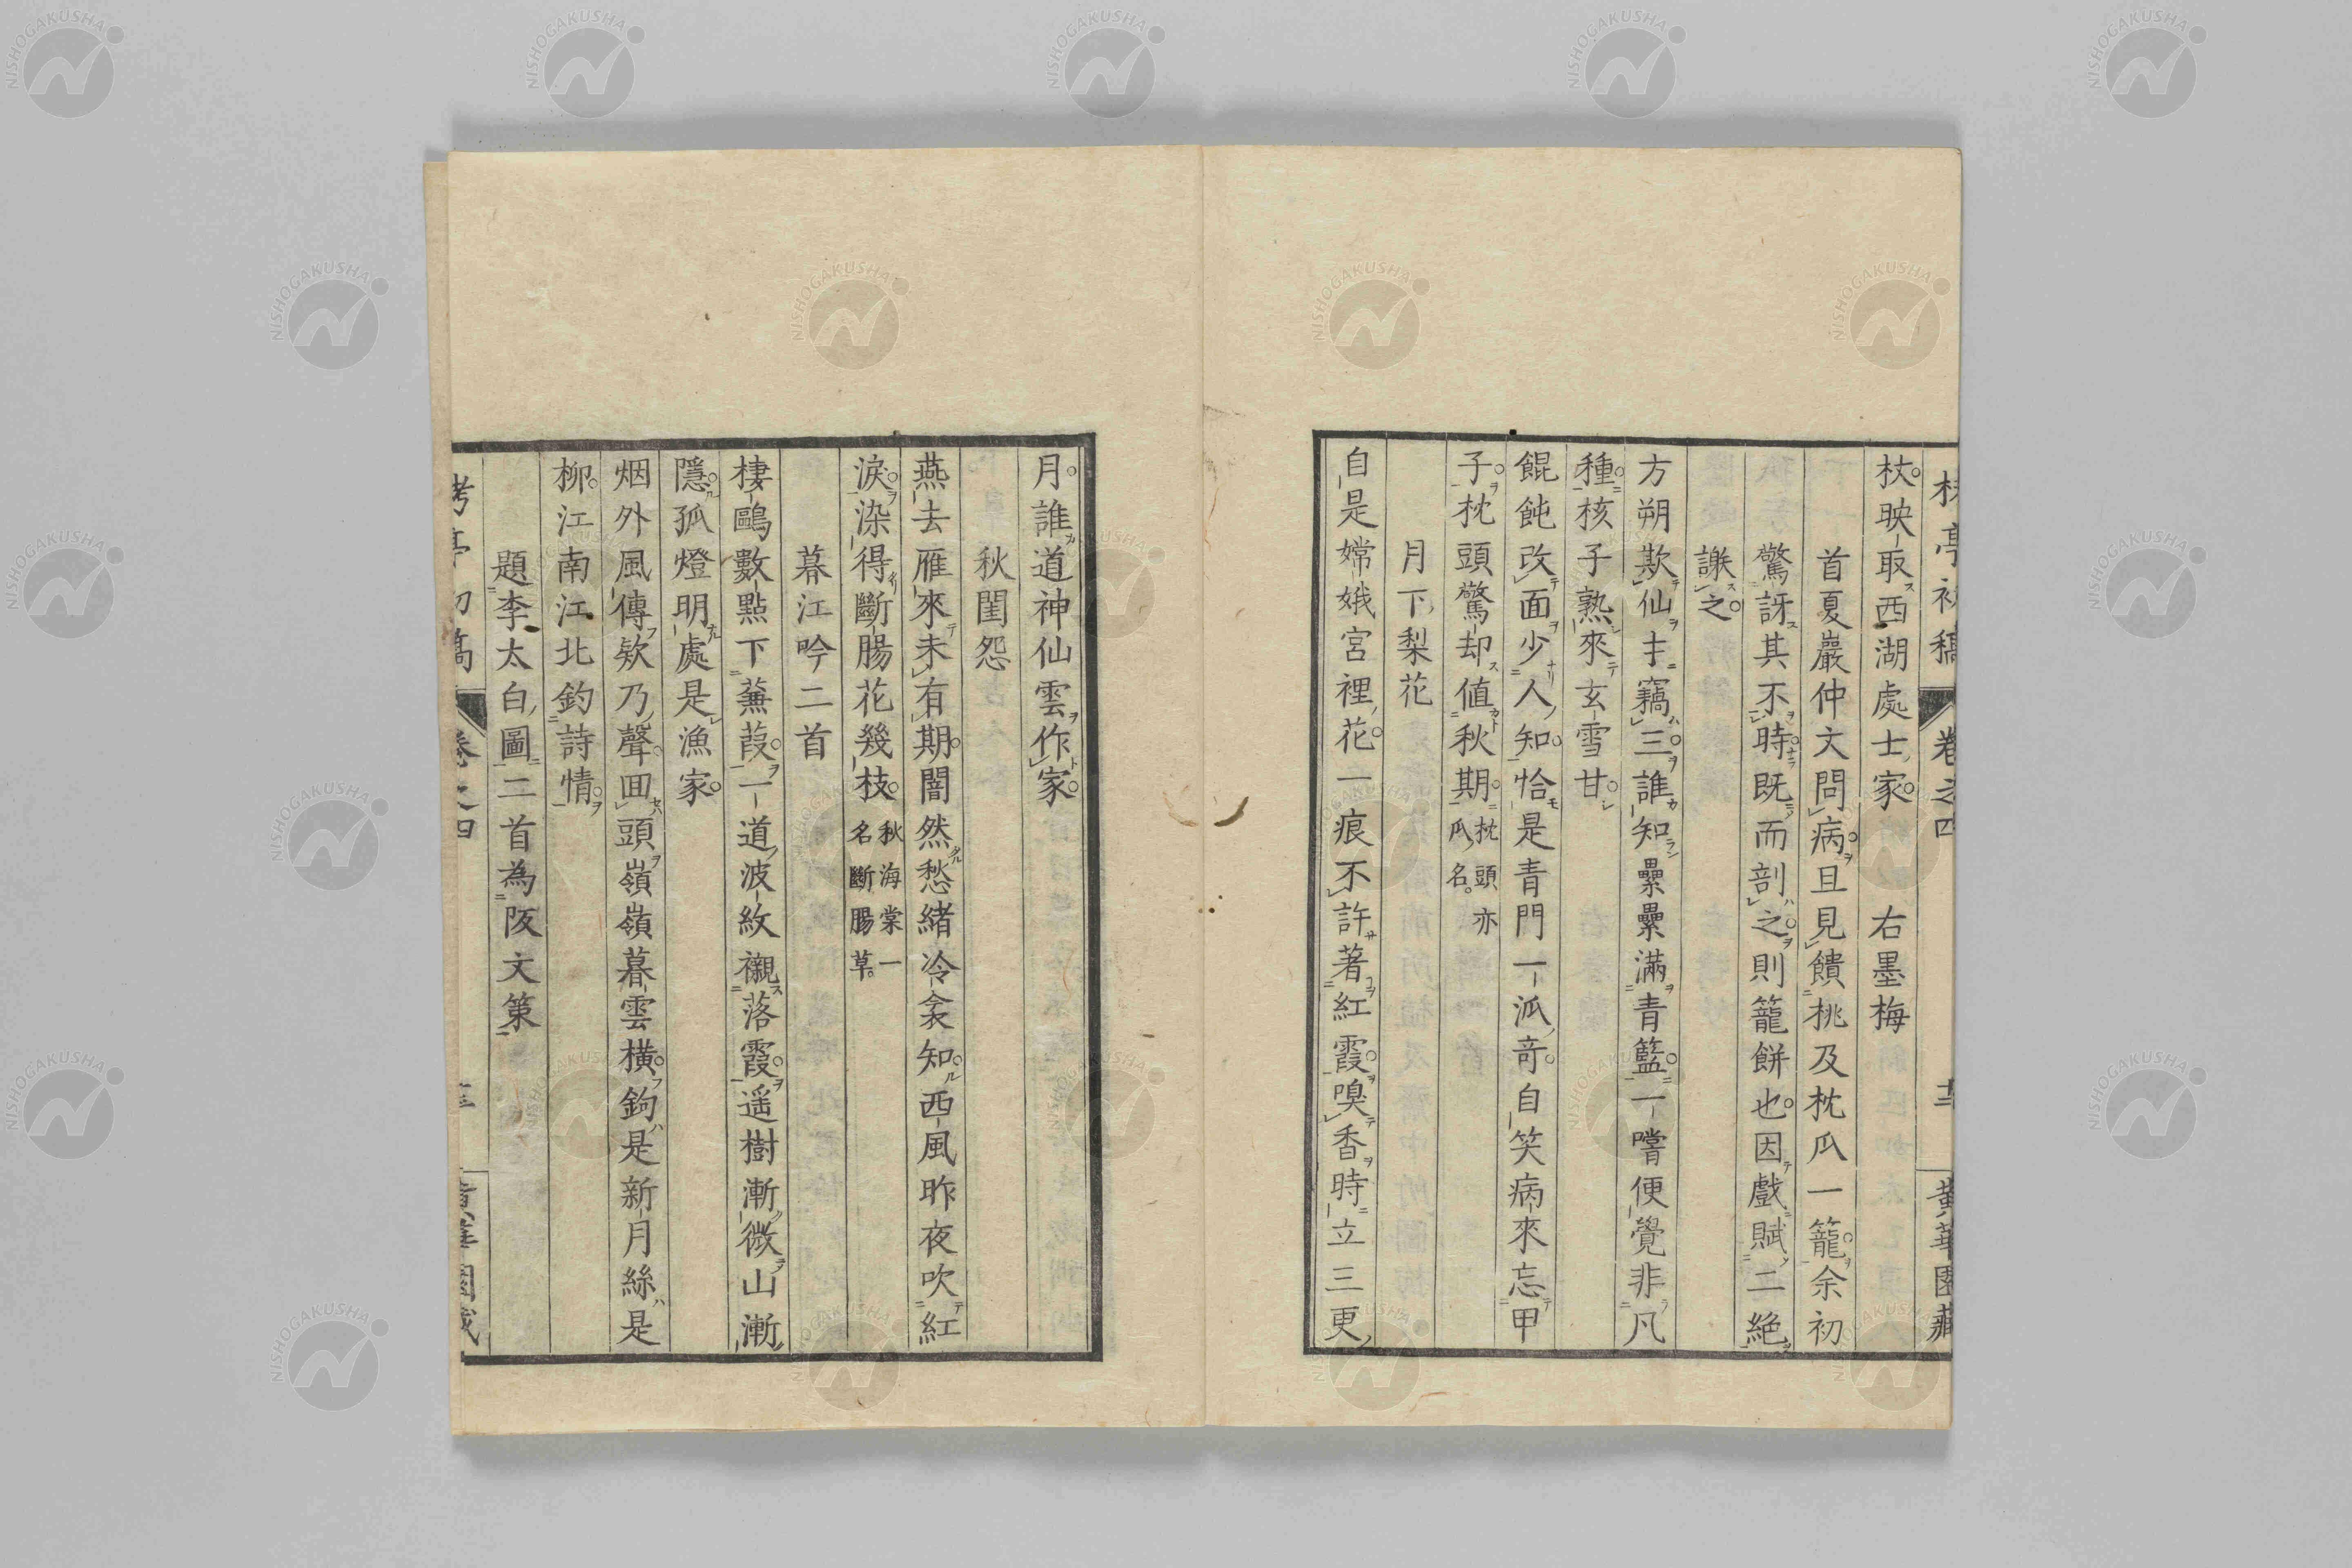 杖映取西湖處士家　右墨梅
首夏巖仲文問病且見饋桃及枕瓜一籠余初
驚訝其不時既而剖之則籠餅也因戲賦二絶
謝之
方朔欺仙手竊三誰知纍纍滿青籃一嚐便覺非凡
種核子熟來玄雪甘
餛飩改面少人知恰是青門一泒奇自笑病來忘甲
子枕頭驚却値秋期枕頭亦瓜名
月下梨花
自是嫦娥宮裡花一痕不許著紅霞嗅香時立三更
月誰道神仙雲作家
秋閨怨
燕去雁來未有期闇然愁緒冷衾知西風昨夜吹紅
淚染得斷腸花幾枝秋海棠一名斷腸草
暮江吟二首
棲鷗數點下蒹葭一道波紋襯落霞遥樹漸微山漸
隱孤燈明處是漁家
烟外風傳欸乃聲囬頭嶺嶺暮雲橫鉤是新月絲是
柳江南江北釣詩情
題李太白圖二首為阪文策
亭初稿
卷之四
黃華園藏